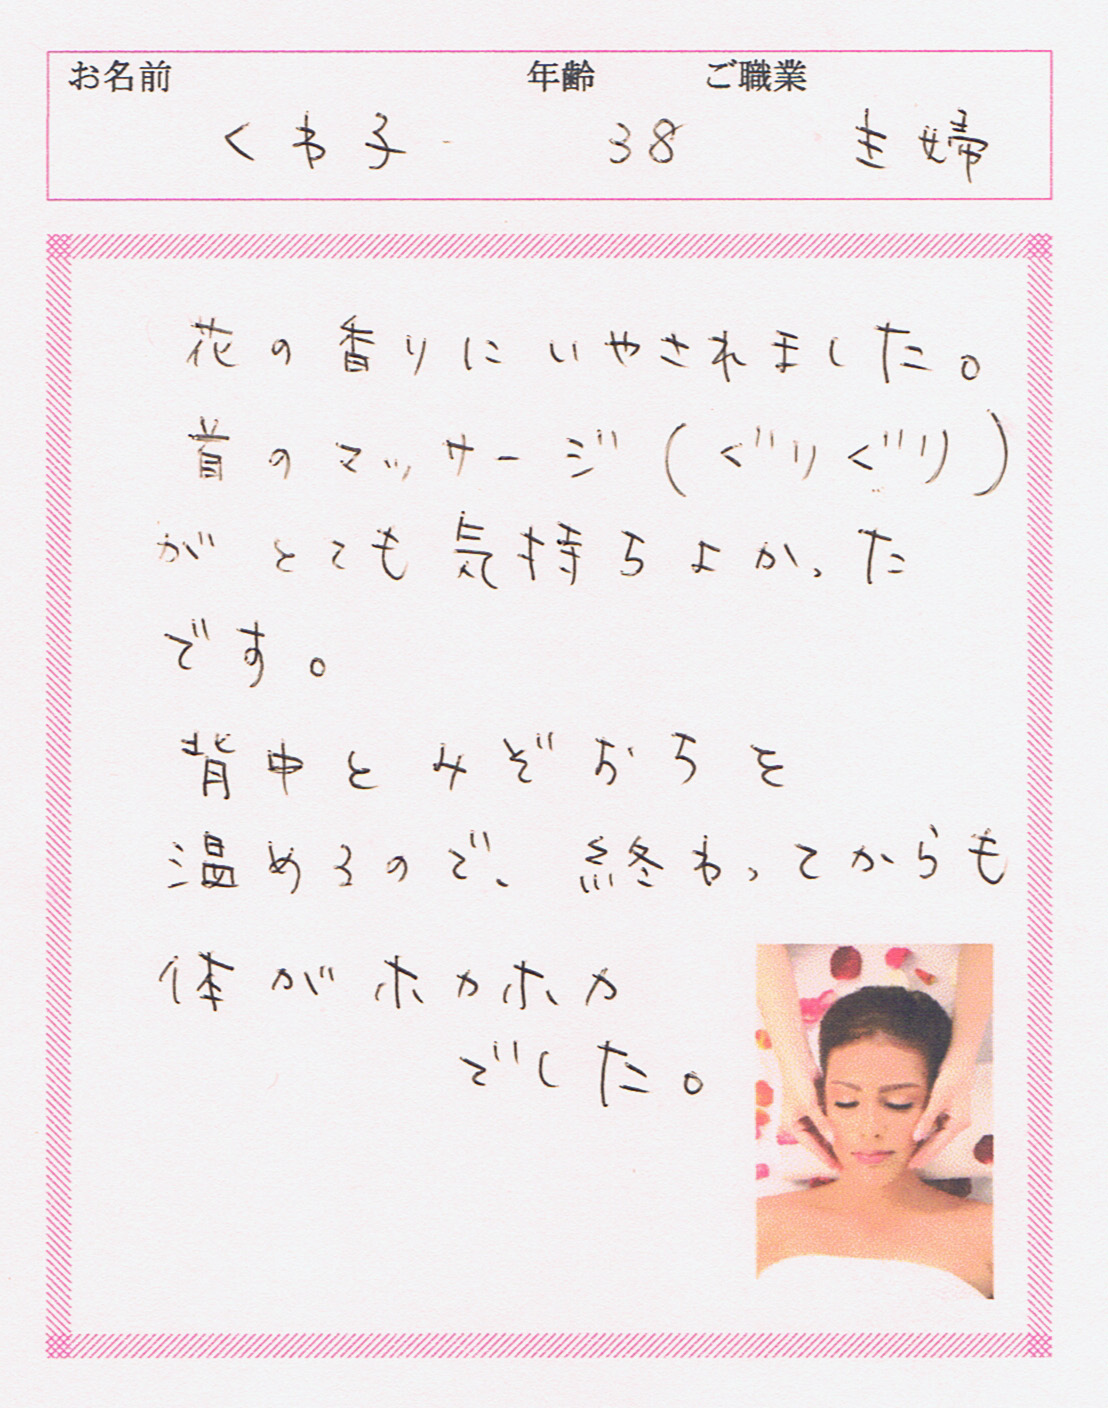 お名前 年齢 ご職業
くわ子 38 主婦
花の香りにいやされました。
首のマッサージ(ぐりぐり)
がとても気持ちよかった
です。
背中とみぞおちを
温めるので、終わってからも
体がホカホカ
でした。